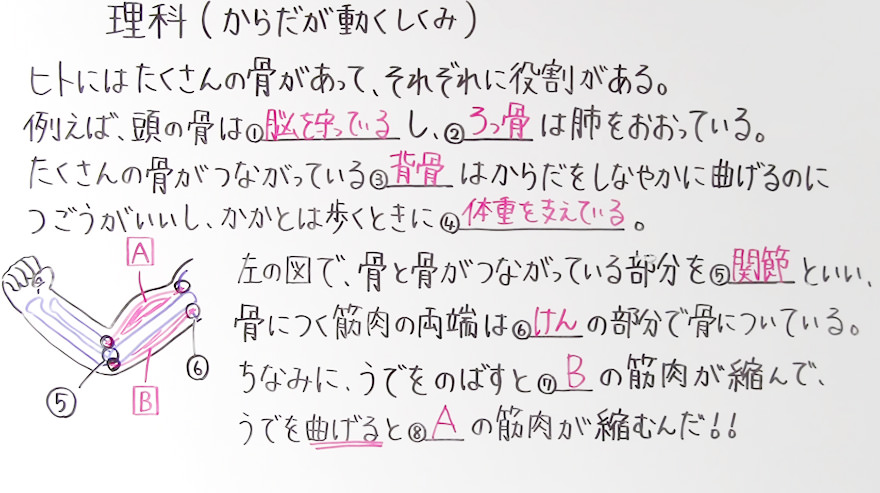 理科(からだが動くしくみ)
ヒトにはたくさんの骨があって、それぞれに役割がある。
例えば、頭の骨は①脳を守っているし、②ろっ骨は肺をおおっている。
たくさんの骨がつながっている③背骨はからだをしなやかに曲げるのに
つごうがいいし、かかとは歩くときに④体重を支えている。
左の図で、骨と骨がつながっている部分を⑤関節といい、
骨につく筋肉の両端は⑥けんの部分で骨についている。
ちなみに、うでをのばすと⑦Bの筋肉が縮んで、
うでを曲げると⑧Aの筋肉が縮むんだ!!
A
⑤
B
⑥